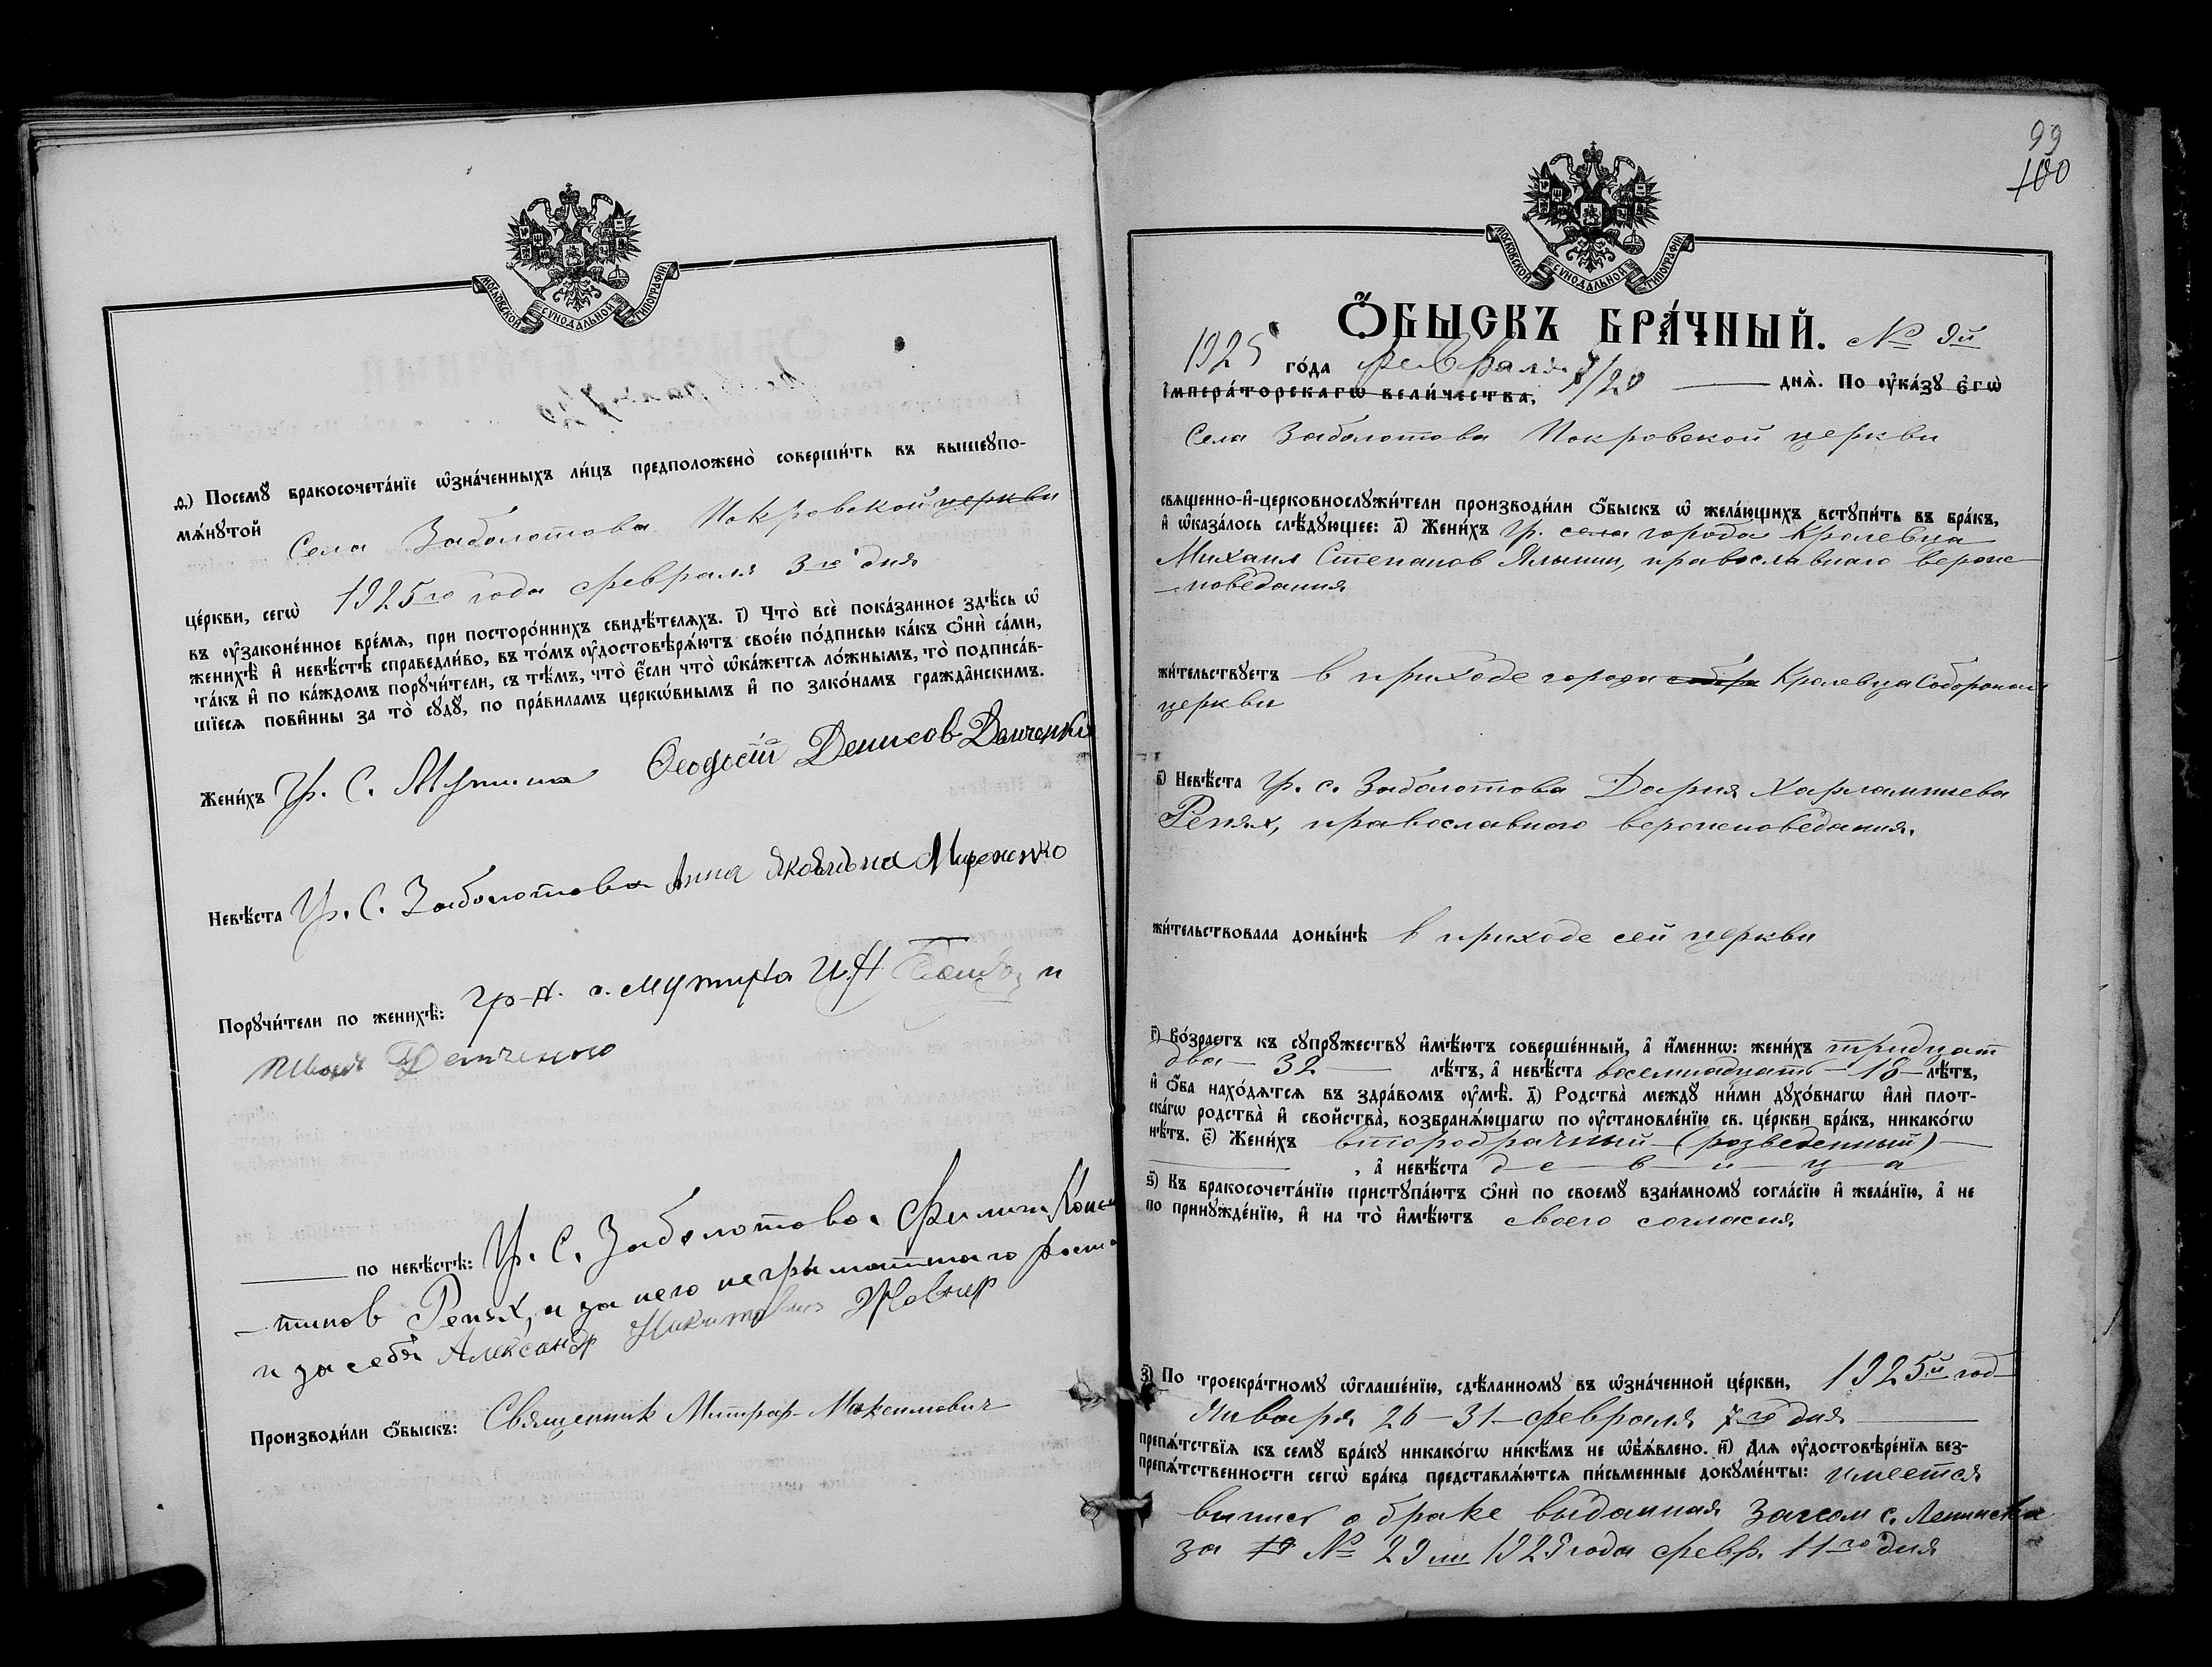 МОСКОВСКОЙ СѴНОДАЛЬНОЙ ТИПОГРАФІИ
д҃) Посемꙋ̀ бракосочета́нїе ѡ҆зна́ченныхъ ли́цъ предположено̀ соверши́ть въ вышеꙋпо-
мѧ́нꙋтой Села Заболотова Покровской церкви
це́ркви, сегѡ̀ 1925го года февраля 3го дня
въ ᲂу҆законе́нное вре́мѧ, при посторо́ннихъ свидѣ́телѧхъ. і҃) Что̀ всѐ пока́занное здѣ́сь ѡ҆
женихѣ̀ и҆ невѣ́стѣ справедли́во, въ то́мъ ᲂу҆достовѣрѧ́ютъ свое́ю по́дписью ка́къ ѻ҆нѝ са́ми,
та́къ и҆ по ка́ждомъ порꙋчи́тели, съ тѣ́мъ, что̀ є҆́сли что̀ ѡ҆ка́жетсѧ ло́жнымъ, то̀ подписа́в-
шїесѧ пови́нны за то̀ сꙋдꙋ̀, по пра́виламъ церкѡ́внымъ и҆ по зако́намъ гражда̂нскимъ.
Жени́хъ Гр. С. Мутина Феодосій Денисов Данченко
Невѣ́ста Гр. С. Заболотова Анна Яковлевна
Порꙋчи́тели по женихѣ̀: гр-н. с. Мутина И. Н и
Иван
по невѣ́стѣ: Гр. С. Заболотова Филип Конст
-тинов Репях, а за него неграматного
и за себя Александр Никитович Жовнир
Производи́ли ѻ҆́быскъ: Священник Митроф. Максимович
99
100
МОСКОВСКОЙ СѴНОДАЛЬНОЙ ТИПОГРАФІИ
Ѻ҆́БЫСКЪ БРА́ЧНЫЙ. № 9й
1925 го́да февраля 7/20 днѧ̀. По ᲂу҆ка́зꙋ є҆гѡ̀
і҆мпера́торскагѡ вели́чества,
Села Заболотова Покровской церкви
свѧще́нно-и҆-церковнослꙋжи́тели производи́ли ѻ҆́быскъ ѡ҆ жела́ющихъ встꙋпи́ть въ бра́къ,
и҆ ѡ҆каза́лось слѣ́дꙋющее: а҃) Жени́хъ гр. села города Кролевца
Михаил Степанов православнаго вероис
-поведания
жи́тельствꙋетъ в приходе города Кролевца
церкви
в҃) Невѣ́ста гр. с. Заболотова Дария Харлампиева
Репях, православного вероисповедания.
жи́тельствовала доны́нѣ в приходе сей церкви
г҃) Во́зрастъ къ сꙋпрꙋ́жествꙋ и҆мѣ́ютъ соверше́нный, а҆ и҆́меннѡ: жени́хъ тридцат
два — 32 — лѣ́тъ, а҆ невѣ́ста восемнадцать — 18 — лѣ́тъ,
и҆ ѻ҆́ба нахо́дѧтсѧ въ здра́вомъ ᲂу҆мѣ̀. д҃) Родства̀ междꙋ̀ ни́ми дꙋхо́внагѡ и҆лѝ плот-
ска́гѡ родства̀ и҆ свойства̀, возбранѧ́ющагѡ по ᲂу҆становле́нїю св. це́ркви бра́къ, никако́гѡ
нѣ́тъ. є҃) Жени́хъ второбрачный (розведенный) —
, а҆ невѣ́ста д—е—в—и—ц—а
ѕ҃) Къ бракосочета́нїю пристꙋпа́ютъ ѻ҆нѝ по своемꙋ̀ взаи́мномꙋ согла́сїю и҆ жела́нїю, а҆ не
по принꙋжде́нїю, и҆ на то̀ и҆мѣ́ютъ своего согласия
з҃) По троекра́тномꙋ ѡ҆глаше́нїю, сдѣ́ланномꙋ въ ѡ҆зна́ченной це́ркви, 1925й год
Января 26 — 31 — февраля 7го дня
препѧ́тствїѧ къ семꙋ̀ бра́кꙋ никако́гѡ никѣ́мъ не ѡ҆б̾ѧ́влено. и҃) Длѧ ᲂу҆достовѣре́нїѧ без-
препѧ́тственности сегѡ̀ бра́ка представлѧ́ютсѧ пи́сьменные докꙋме́нты: имеется
выпись о браке выданная Загсом с. Ленинска
за № 29 1925 года февр. 11го дня